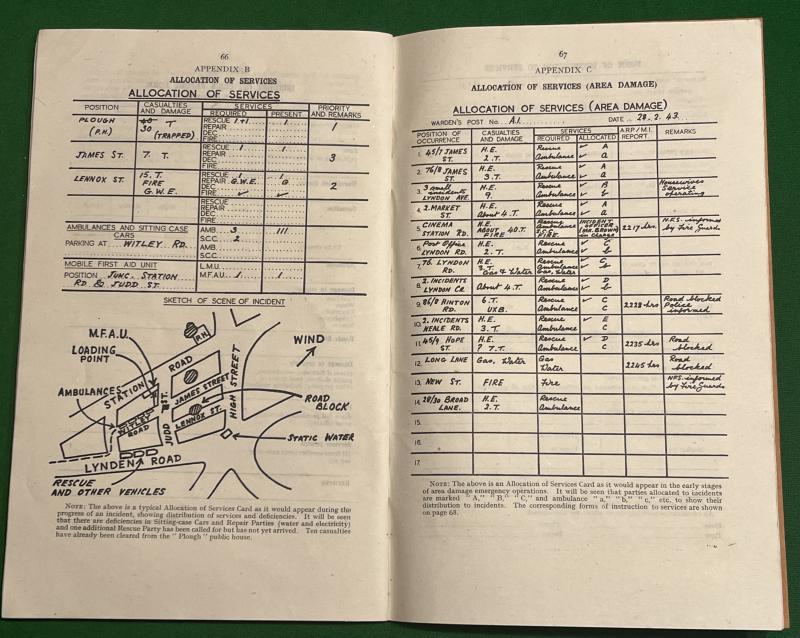 66
APPENDIX B
ALLOCATION OF SERVICES
ALLOCATION OF SERVICES
POSITION CASUALTIES AND DAMAGE SERVICES REQUIRED PRESENT PRIORITY AND REMARKS
PLOUGH (P.H.) 40 T 30 (TRAPPED) RESCUE 1+1 1 REPAIR DEC FIRE 1
JAMES ST. 7. T. RESCUE 1 1 REPAIR DEC FIRE 3
LENNOX ST. 15. T. FIRE G.W.E. RESCUE 1 1 REPAIR G.W.E. G DEC FIRE ✓ ✓ 2
RESCUE REPAIR DEC FIRE
AMBULANCES AND SITTING CASE CARS
PARKING AT WITLEY RD.
AMB. 3 III
S.C.C. 2
AMB.
S.C.C.
MOBILE FIRST AID UNIT
POSITION JUNC. STATION RD & JUDD ST.
L.M.U.
M.F.A.U. 1 1
SKETCH OF SCENE OF INCIDENT
M.F.A.U.
LOADING POINT
AMBULANCES
STATION ROAD
P.H.
WIND
JAMES STREET
LENNOX ST.
HIGH STREET
JUDD ST.
WITLEY ROAD
ROAD BLOCK
STATIC WATER
LYNDEN ROAD
RESCUE AND OTHER VEHICLES
NOTE: The above is a typical Allocation of Services Card as it would appear during the
progress of an incident, showing distribution of services and deficiencies. It will be seen
that there are deficiencies in Sitting-case Cars and Repair Parties (water and electricity)
and one additional Rescue Party has been called for but has not yet arrived. Ten casualties
have already been cleared from the "Plough" public house.
67
APPENDIX C
ALLOCATION OF SERVICES (AREA DAMAGE)
ALLOCATION OF SERVICES (AREA DAMAGE)
WARDEN'S POST No. A.1. DATE 28.2.43.
POSITION OF OCCURRENCE CASUALTIES AND DAMAGE SERVICES REQUIRED ALLOCATED A.R.P./M.1. REPORT REMARKS
1. 45/7 JAMES ST. H.E. 2.T. Rescue ✓ A Ambulance ✓ a
2. 76/8 JAMES ST. H.E. 3.T. Rescue ✓ A Ambulance ✓ a
3. 3 small incidents LYNDON AVE. H.E. 9. Rescue ✓ B Ambulance ✓ b Housewives Service operating
4. 2. MARKET ST. H.E. About 4.T. Rescue ✓ A Ambulance ✓ a
5. CINEMA STATION RD. H.E. ABOUT 40.T. FIRE Rescue Ambulance FIRE INCIDENT OFFICER (MR. BROWN) in charge 2217 hrs. N.F.S. informed by Fire Guards
6. Post Office LYNDON RD. H.E. 2.T. Rescue ✓ C Ambulance ✓ b
7. 76. LYNDON RD. H.E. Gas & Water Rescue ✓ C Ambulance ✓ b Gas, Water
8. 2. INCIDENTS LYNDON CR. About 4.T. Rescue ✓ D Ambulance ✓ b
9. 86/8 HINTON RD. 6.T. UXB. Rescue ✓ C Ambulance C 2228 hrs Road blocked Police informed
10. 2. INCIDENTS NEALE RD. H.E. 3.T. Rescue ✓ E Ambulance C
11. 45/9 HOPE ST. H.E. ? 7.T. Rescue ✓ D Ambulance C 2235 hrs Road blocked
12. LONG LANE Gas. Water Gas Water 2245 hrs Road blocked
13. NEW ST. FIRE Fire NFS. informed by Fire Guards
14. 28/30 BROAD LANE. H.E. 2.T. Rescue Ambulance
15.
16.
17.
NOTE: The above is an Allocation of Services Card as it would appear in the early stages
of area damage emergency operations. It will be seen that parties allocated to incidents
are marked "A," "B," "C," and ambulance "a," "b," "c," etc. to show their
distribution to incidents. The corresponding forms of instruction to services are shown
on page 68.